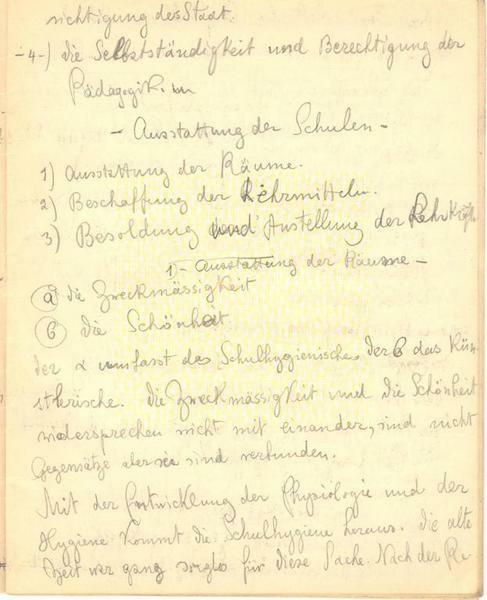 sichtigung des Staat.
-4-) die Selbstständigkeit und Berechtigung der
Pädagogik.
- Ausstattung der Schulen -
1) Ausstattung der Räume.
2) Beschaffung der Lehrmitteln.
3) Besoldung und Anstellung der Lehrkräfte
1)- Ausstattung der Räume -
a die Zweckmässigkeit
b die Schönheit
der α umfasst das Schulhygienische, der b das Kün-
stlerische. die Zweckmässigkeit und die Schönheit
widersprechen nicht mit einander, sind nicht
Gegensätze aber sie sind verbunden.
Mit der Entwicklung der Physiologie und der
Hygiene kommt die Schulhygiene heraus. die alte
Zeit war ganz sorglos für diese Sache. Nach der Re-